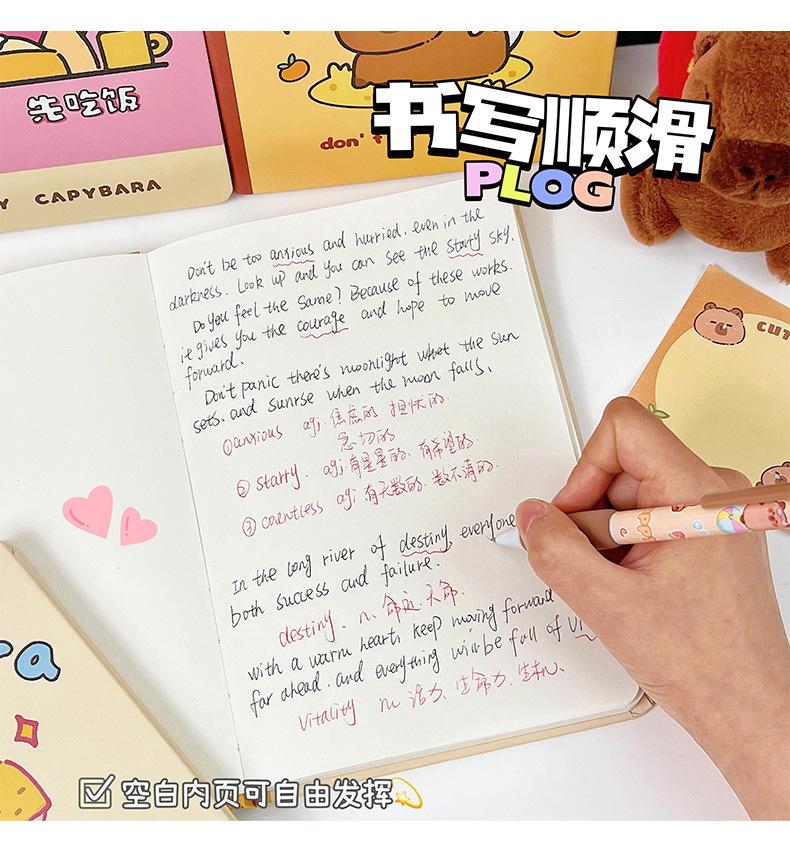 先吃饭
Y CAPYBARA
don't
书写顺滑
PLOG
cut
Don't be too anxious and hurried, even in the
darkness. Look up and you can see the starty sky.
Do you feel the same? Because of these works.
it gives you the courage and hope to move
forward.
Don't panic there's moonlight what the sun
sets, and sunrse when the moon falls.
①anxious agj.焦虑的 担忧的.
急切的
② starry. agj.有星星的、有希望的.
③ countless agj 有无数的、数不清的.
In the long river of destiny, everyone
both success and failure.
destiny. n. 命运.天命.
with a warm heart, keep moving forward
far ahead. and everything will be full of vi
vitality n. 活力、生命力、生机、
ra
空白内页可自由发挥